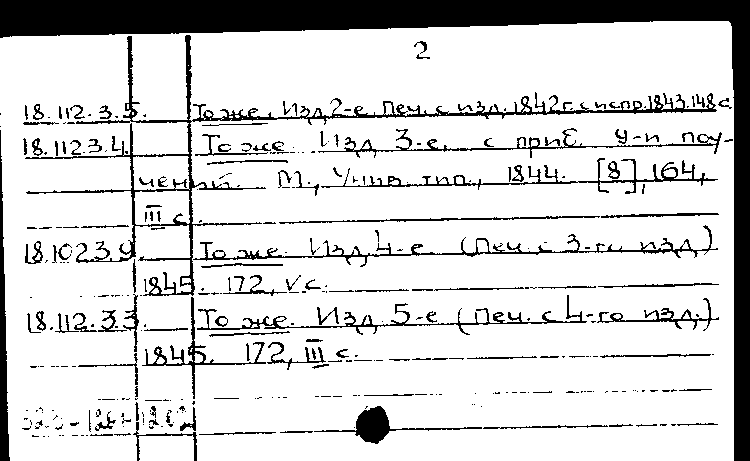 2
18.112.3.5. То же. Изд. 2-е. Печ. с изд. 1842 г. с испр. 1843. 148 с.
18.112.3.4. То же. Изд. 3-е, с приб. 4-и поу-
чений. М., Унив. тип., 1844. [8], 164,
III с.
18.102.3.9. То же. Изд. 4-е. (Печ. с 3-го изд.)
1845. 172, V с.
18.112.3.3. То же. Изд. 5-е (Печ. с 4-го изд.)
1845. 172, III с.